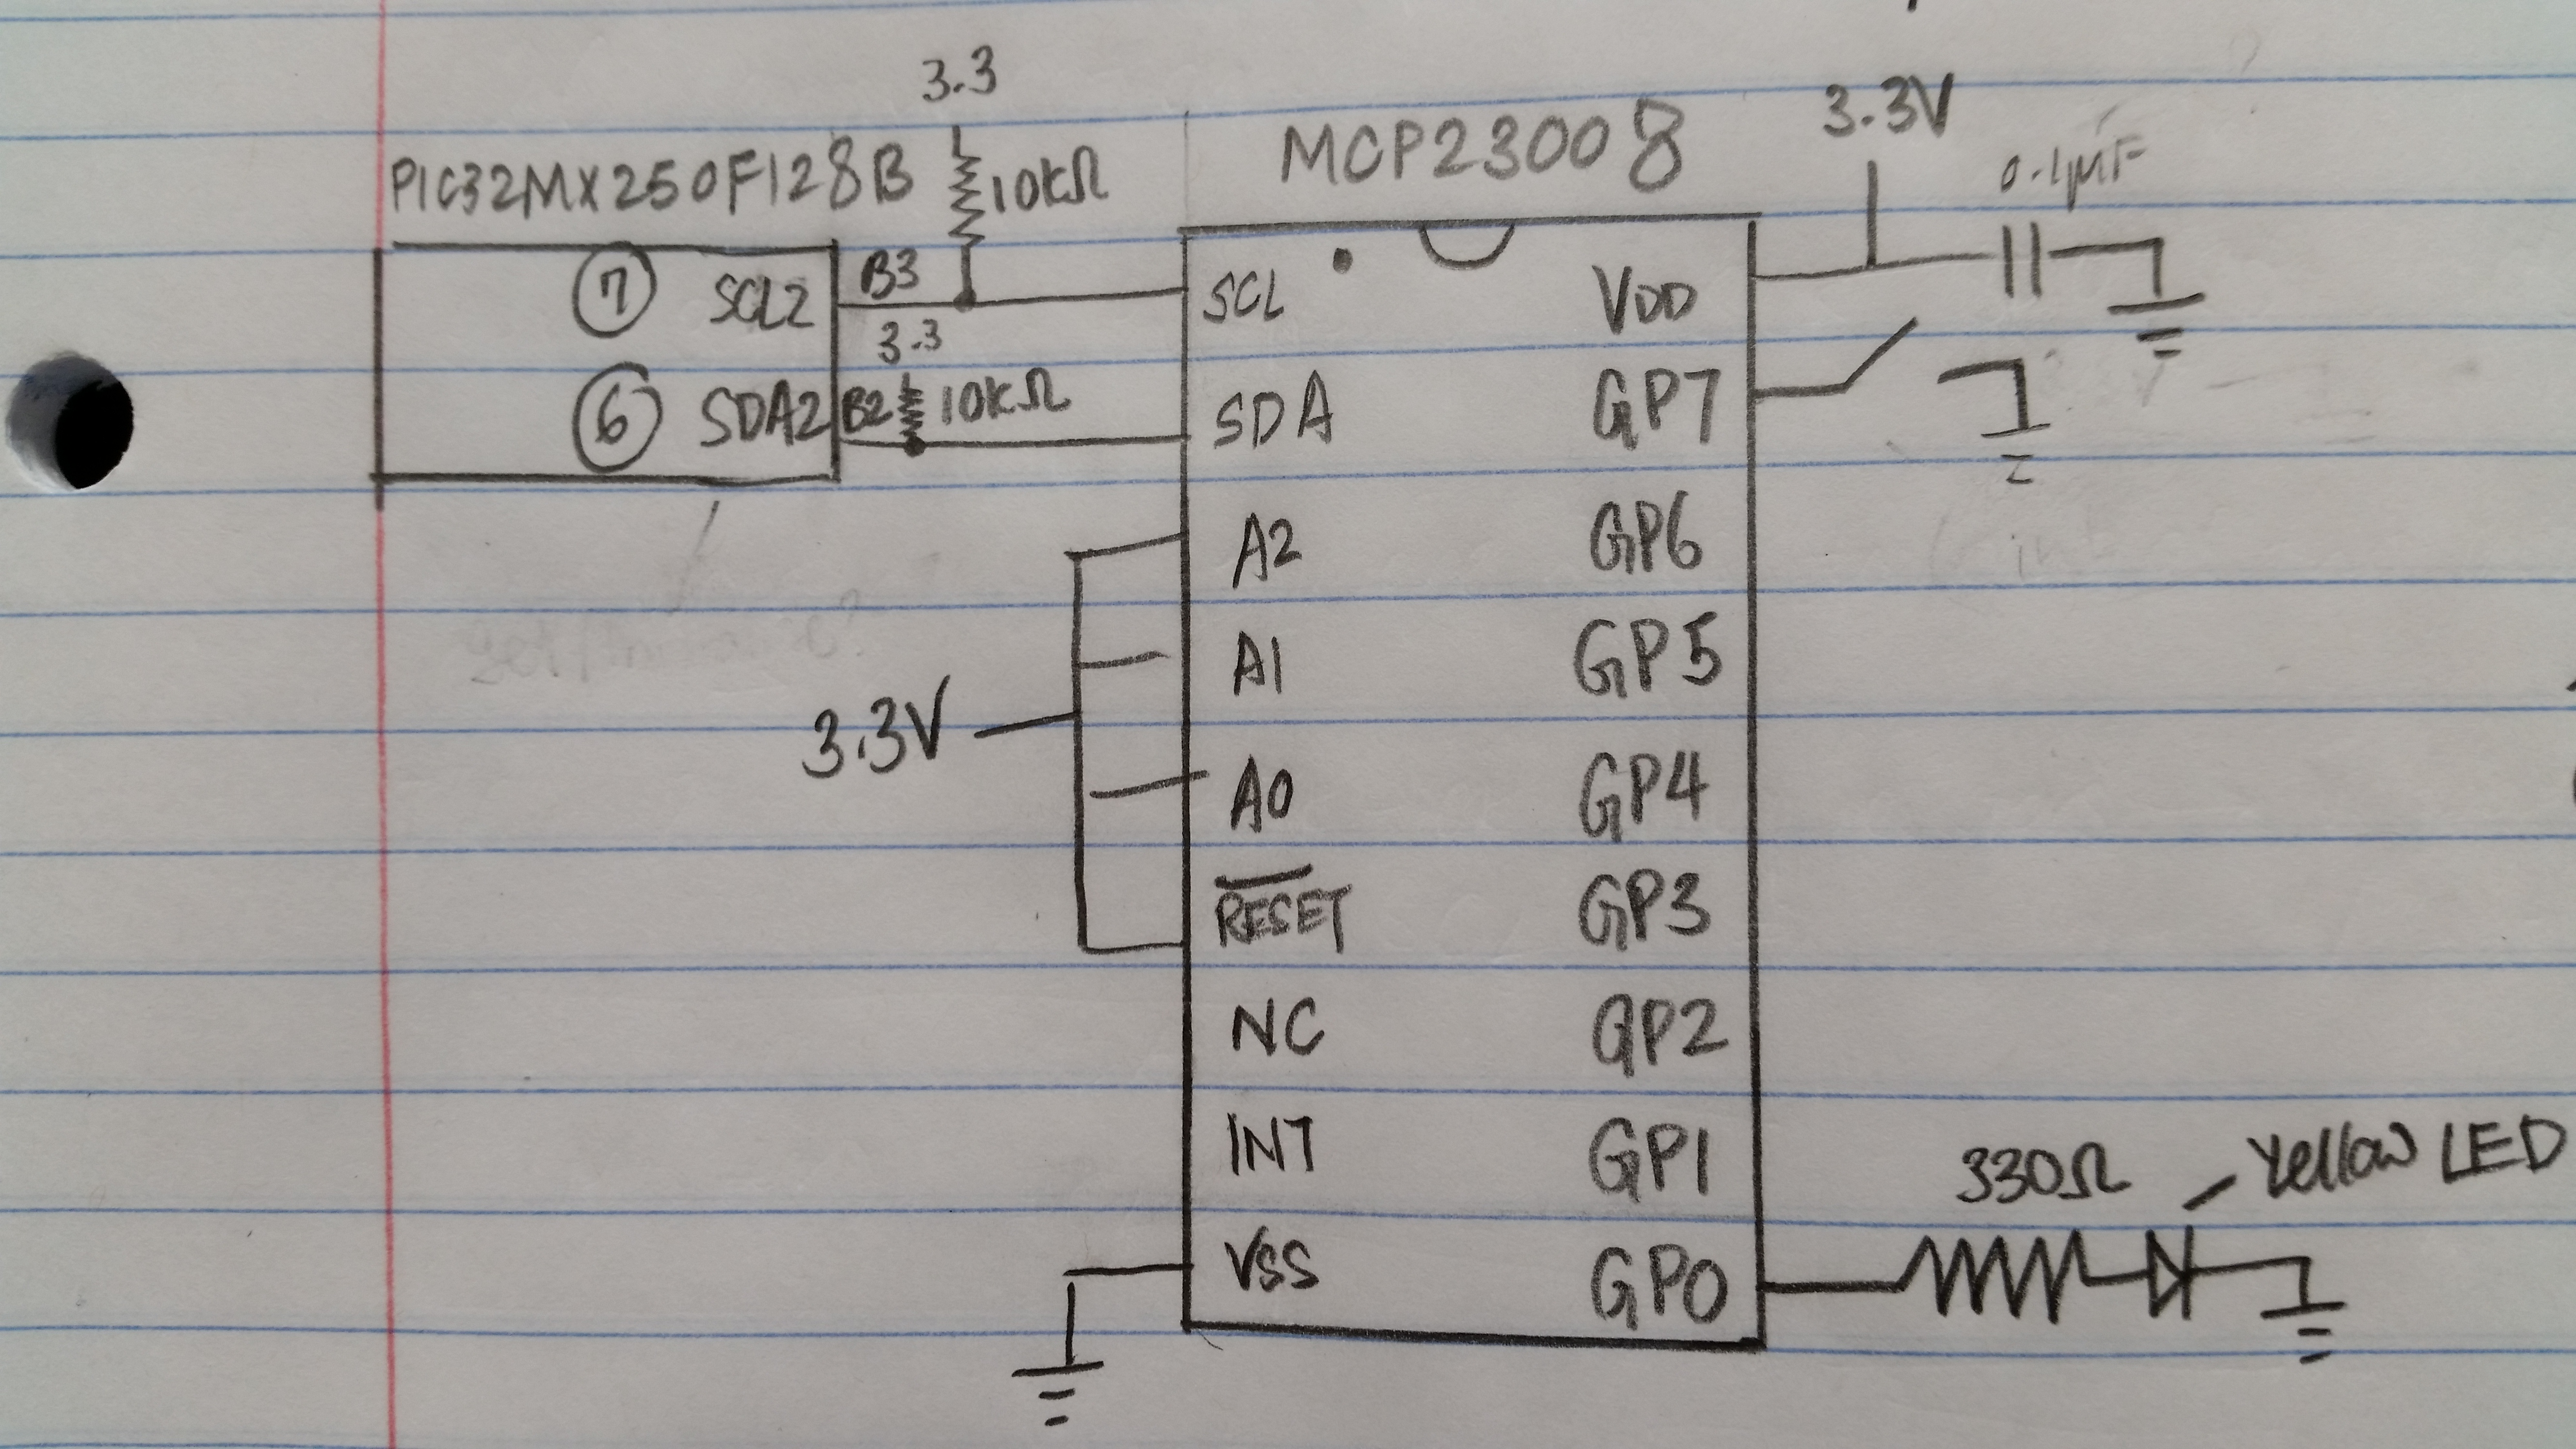 3.3
PIC32MX250F128B
10kΩ
MCP23008
3.3V
0.1μF
7 SCL2
B3
SCL
VDD
3.3
6 SDA2
B2
10kΩ
SDA
GP7
A2
GP6
A1
GP5
3.3V
A0
GP4
RESET
GP3
NC
GP2
INT
GP1
330Ω
Yellow LED
VSS
GP0